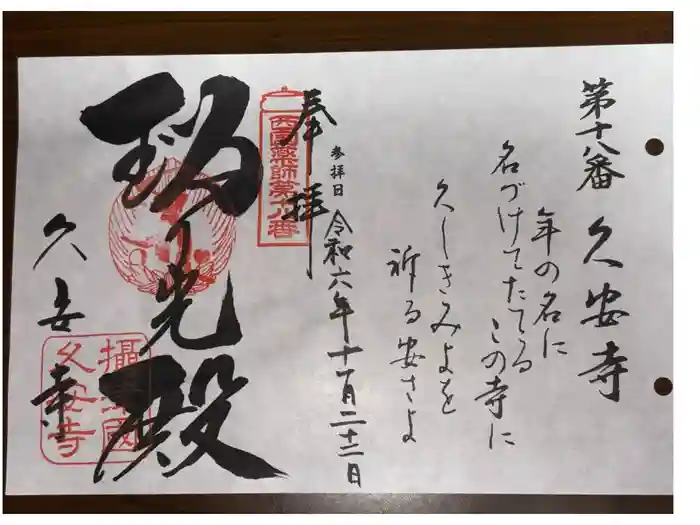 第十八番 久安寺
年の名に
名づけてたてる
この寺に
久しきみよを
祈る安さよ
奉拝
参拝日 令和六年十一月二十二日
西国薬師第十八番
瑠り光殿
久安寺
攝津國
久安寺